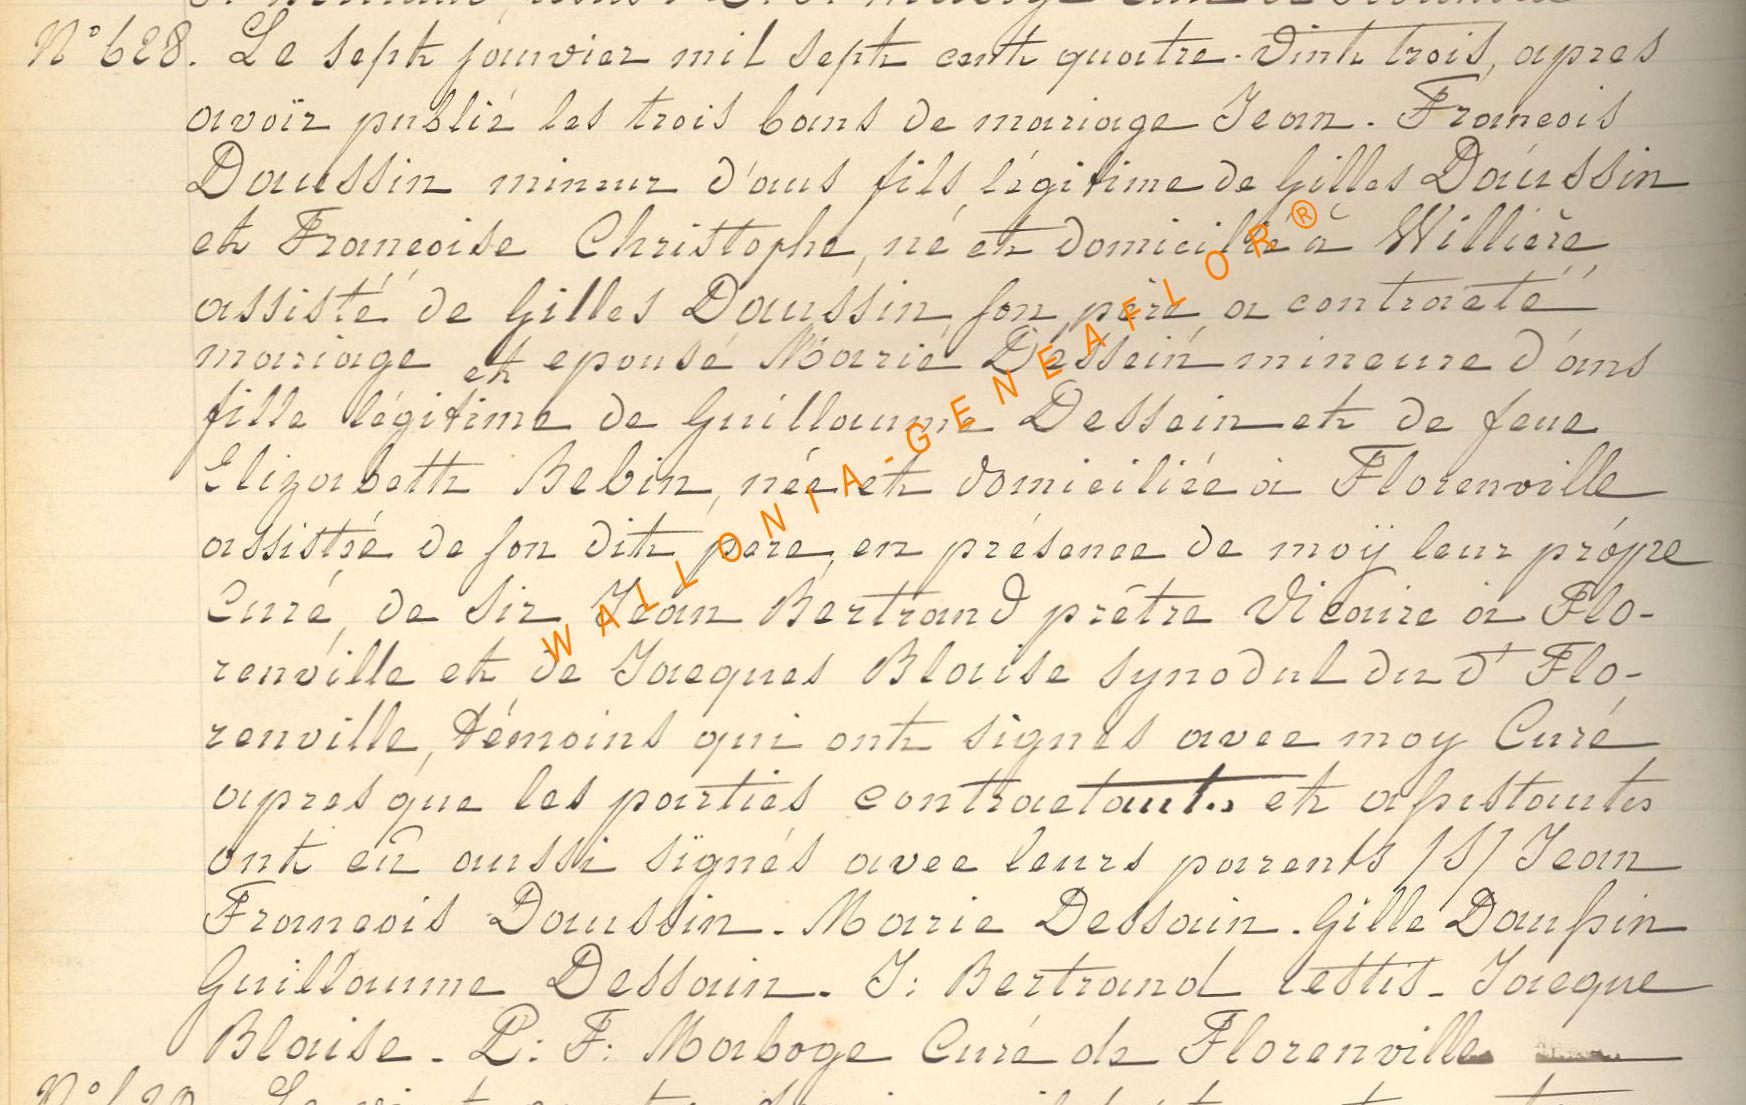 N° 628. Le sept janvier mil sept cent quatre-vint trois, apres
avoir publié les trois bans de mariage Jean-Francois
Daussin mineur d'ans fils légitime de Gilles Daussin
et Francoise Christophe, né et domicilié à Willière
assisté de Gilles Daussin son père a contracté
mariage et epousé Marie Dessein mineure d'ans
fille légitime de Guillaume Dessein et de feue
Elizabeth Bebin, née et domiciliée à Florenville
assistée de son dit père, en présence de moÿ leur própre
Curé, de Sir Jean Bertrand prêtre Vicaire à Flo-
renville et de Jacques Blaise synodal du dt Flo-
renville, témoins qui ont signés avec moy Curé
apres que les parties contractants et assistants
ont eu aussi signés avec leurs parents /S/ Jean
Francois Daussin. Marie Dessain. Gille Daussin
Guillaume Dessain. J: Bertrand testis. Jacque
Blaise. P: F: Marboge Curé de Florenville
WALLONIA-GENEAFLOR®